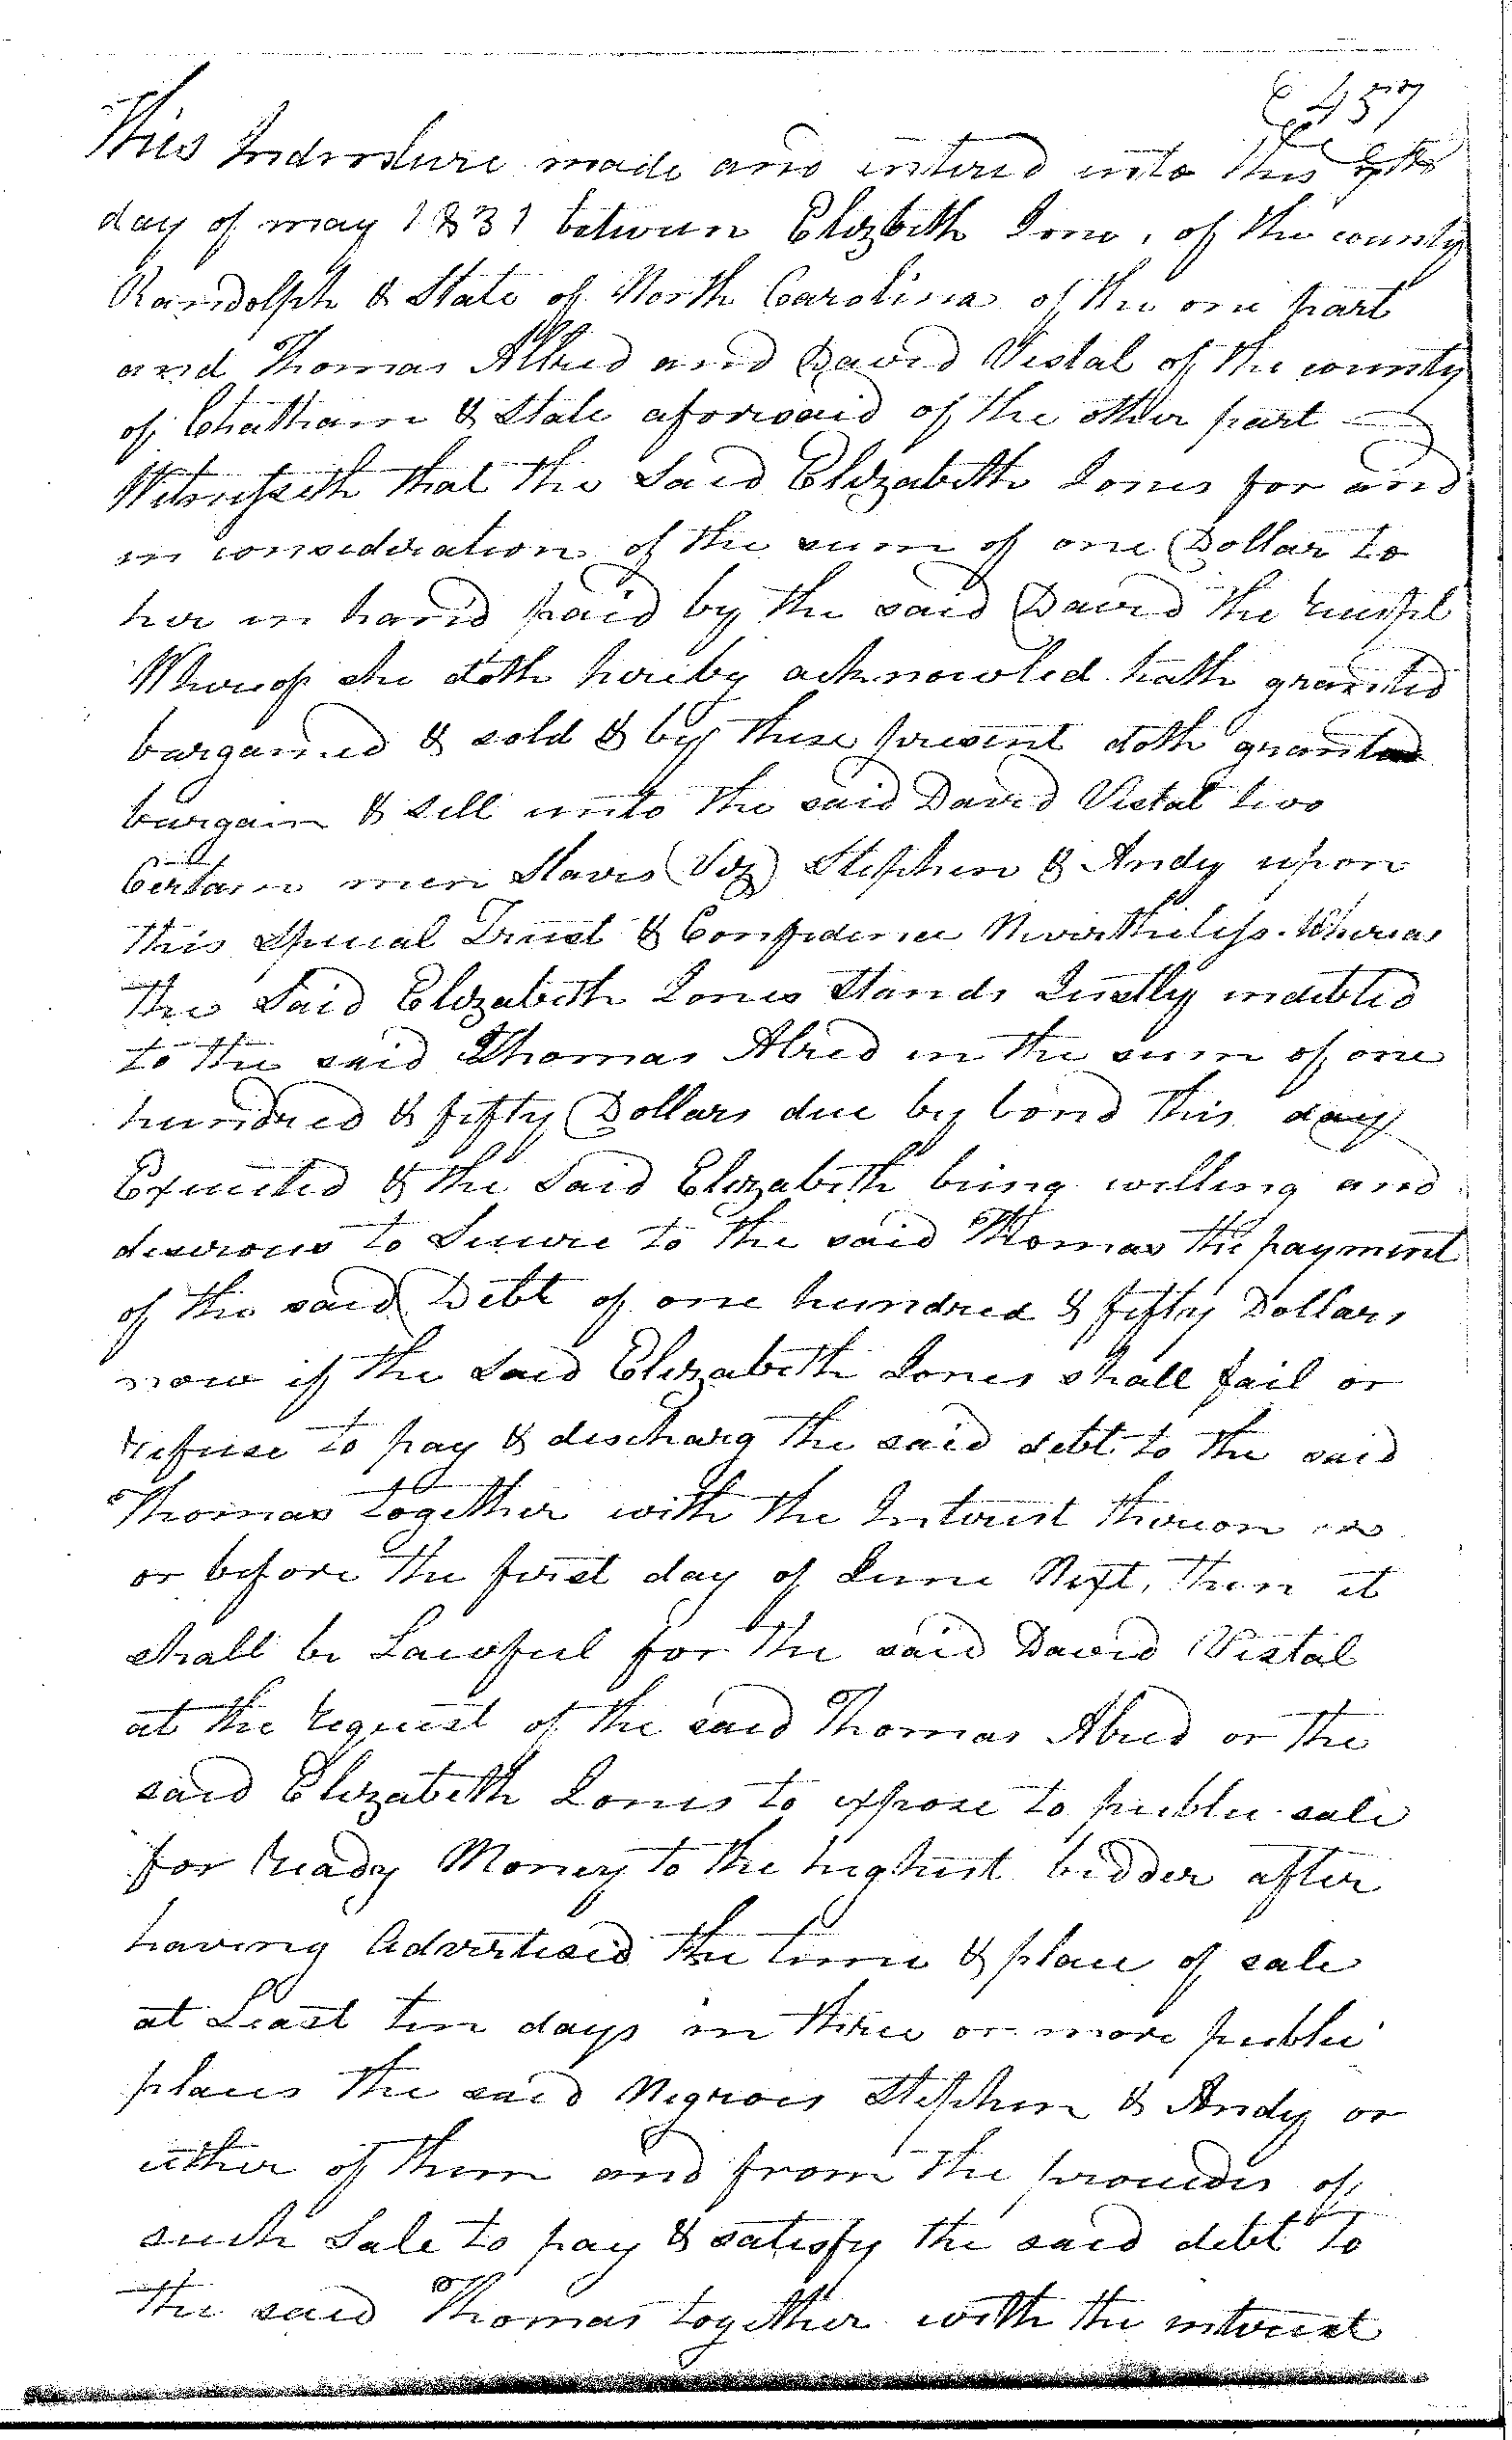 457
This Indenture made and entered into this
day of may 1831 between Elizbeth Jone, of the county
Randolph & State of North Carolina of the one part
and Thomas Allred and David Vestal of the county
of Chatham & State aforesaid of the other part
Witnesseth that the Said Elizabeth Jones for and
in consideration of the sum of one Dollar to
her in hand paid by the said David the
Whereof she doth hereby acknowled hath granted
bargained & sold & by these present doth granted
bargain & sell unto the said David Vistal two
Certain men Slaves (Viz) Stephen & Andy upon
this Special Trust & Confidence Nevertheless. Whereas
the Said Elizabeth Jones Stands Justly indebted
to the said Thomas Alred in the sum of one
hundred & fifty Dollars due by bond this day
Executed & the Said Elizabeth being willing and
desirous to Secure to the said Thomas the payment
of the said Debt of one hundred & fifty Dollars
now if the Said Elizabeth Jones shall fail or
refuse to pay & discharg the said debt to the said
Thomas together with the Interest thereon
or before the first day of June Next, then it
shall be Lawful for the said David Vistal
at the request of the said Thomas Alred or the
said Elizabeth Jones to expose to public sale
for ready Money to the highest bidder after
having Advertised the time & place of sale
at Least ten days in three or more public
places the said Negroes Stephen & Andy or
either of them and from the proceeds of
such Sale to pay & satisfy the said debt to
the said Thomas together with the interest